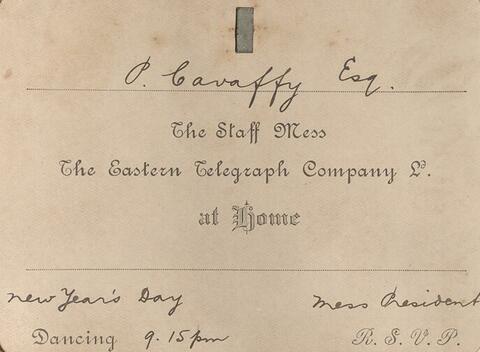 P. Cavaffy Esq.
The Staff Mess
The Eastern Telegraph Company Ld.
at Home
New Year's Day
Mess President
Dancing 9.15 pm
R. S. V. P.